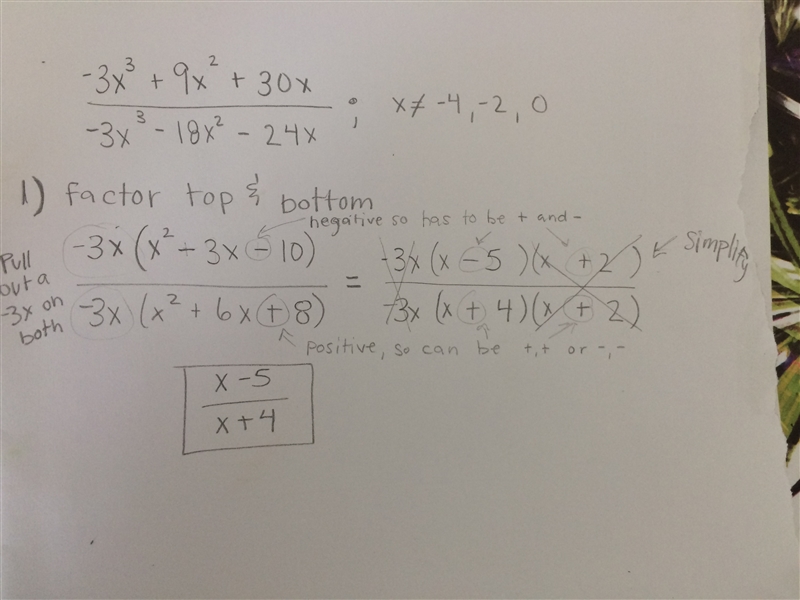 -3x³ + 9x² + 30x
-3x³ - 18x² - 24x
; x ≠ -4, -2, 0
1) factor top & bottom
negative so has to be + and -
Pull out a -3x on both
-3x(x² - 3x - 10)
-3x(x² + 6x + 8)
=
-3x(x - 5)(x + 2)
-3x(x + 4)(x + 2)
Simplify
positive, so can be +,+ or -,-
x - 5
x + 4